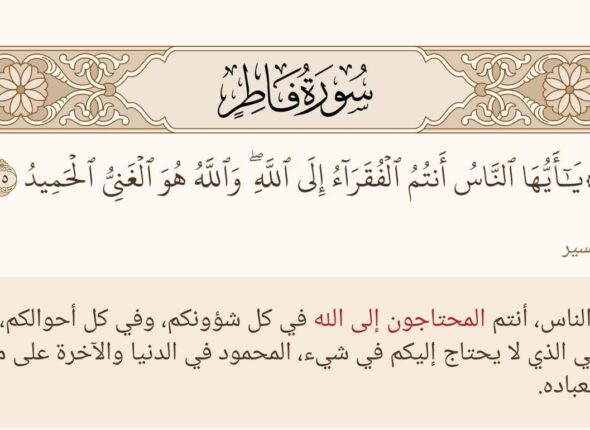 سُورَةُ فَاطِرٍ
يَـٰٓأَيُّهَا ٱلنَّاسُ أَنتُمُ ٱلْفُقَرَآءُ إِلَى ٱللَّهِ ۖ وَٱللَّهُ هُوَ ٱلْغَنِىُّ ٱلْحَمِيدُ
سير
الناس، أنتم المحتاجون إلى الله في كل شؤونكم، وفي كل أحوالكم،
ي الذي لا يحتاج إليكم في شيء، المحمود في الدنيا والآخرة على م
عباده.